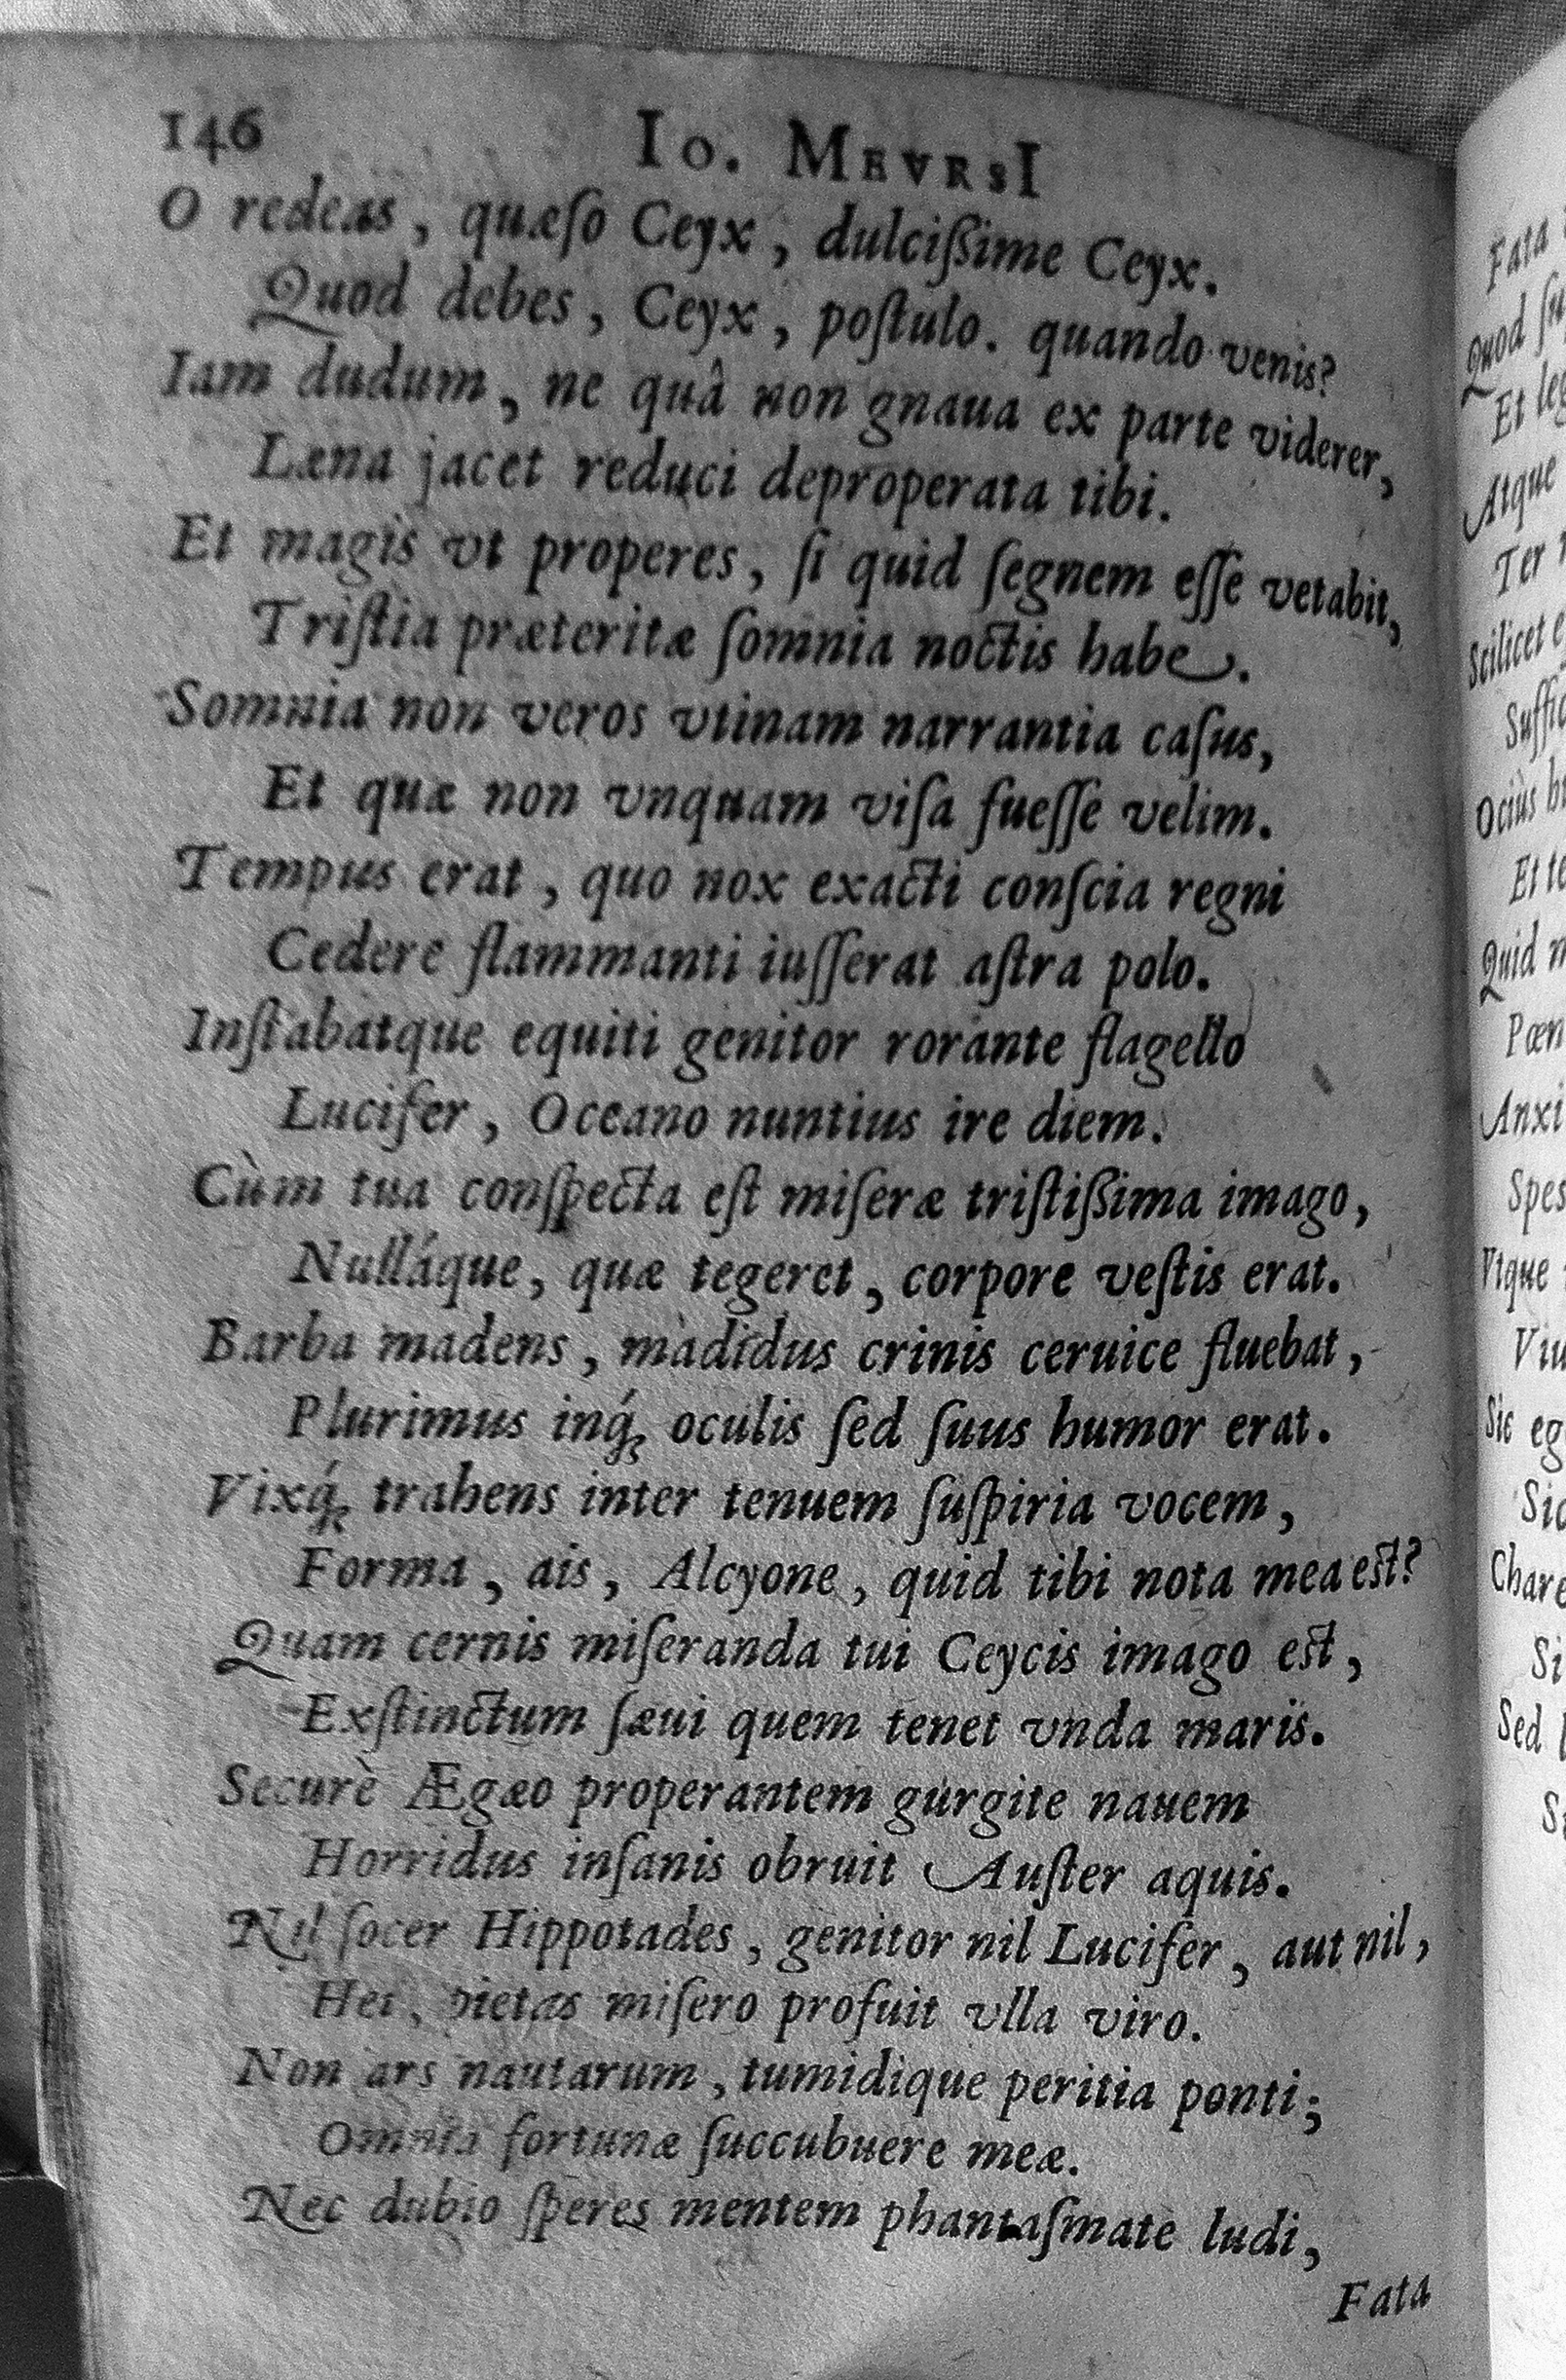 146 Io. MEVRSI
O redeas, quæſo Ceyx, dulciſſime Ceyx.
Quod debes, Ceyx, poſtulo. quando venis?
Iam dudum, ne quâ non gnaua ex parte viderer,
Læna jacet reduci deproperata tibi.
Et magis vt properes, ſi quid ſegnem eſſe vetabit,
Triſtia præteritæ ſomnia noctis habe.
Somnia non veros vtinam narrantia caſus,
Et quæ non vnquam viſa fueſſe velim.
Tempus erat, quo nox exacti conſcia regni
Cedere flammanti iuſſerat aſtra polo.
Inſtabatque equiti genitor rorante flagello
Lucifer, Oceano nuntius ire diem.
Cùm tua conſpecta eſt miſeræ triſtiſſima imago,
Nulláque, quæ tegeret, corpore veſtis erat.
Barba madens, madidus crinis ceruice fluebat,
Plurimus inq́; oculis ſed ſuus humor erat.
Vixq́; trahens inter tenuem ſuſpiria vocem,
Forma, ais, Alcyone, quid tibi nota mea est?
Quam cernis miſeranda tui Ceycis imago est,
Exſtinctum ſæui quem tenet vnda maris.
Securè Ægæo properantem gurgite nauem
Horridus inſanis obruit Auſter aquis.
Nil ſocer Hippotades, genitor nil Lucifer, aut nil,
Hei, pietas miſero profuit vlla viro.
Non ars nautarum, tumidique peritia ponti;
Omnia fortunæ ſuccubuere meæ.
Nec dubio ſperes mentem phantaſmate ludi,
Fata
Fata
Quod
Et
Atque
Ter
Scilicet
Ociùs
Et
Quid
Spes
Vtque
Sic
Sed